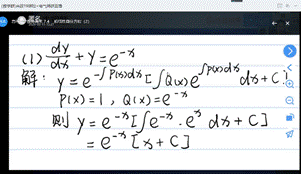 (1) dy/dx + y = e^{-x}
解: y = e^{-∫P(x)dx} [∫Q(x) e^{∫P(x)dx} dx + C]
P(x) = 1 , Q(x) = e^{-x}
则 y = e^{-x} [∫e^{-x} · e^{x} dx + C]
= e^{-x} [x + C]